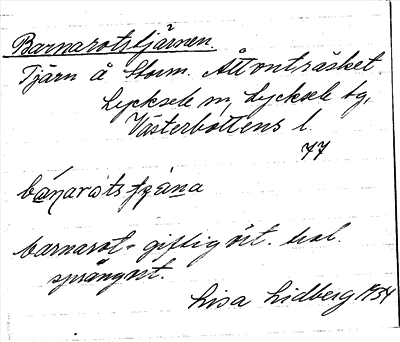 Barnarotstjärnen.
Tjärn å Storm. Åttonträsket.
Lycksele sn, Lycksele tg,
Västerbottens l.
77
barnarot = giftig ört.
sprängört.
Lisa Lidberg 1934